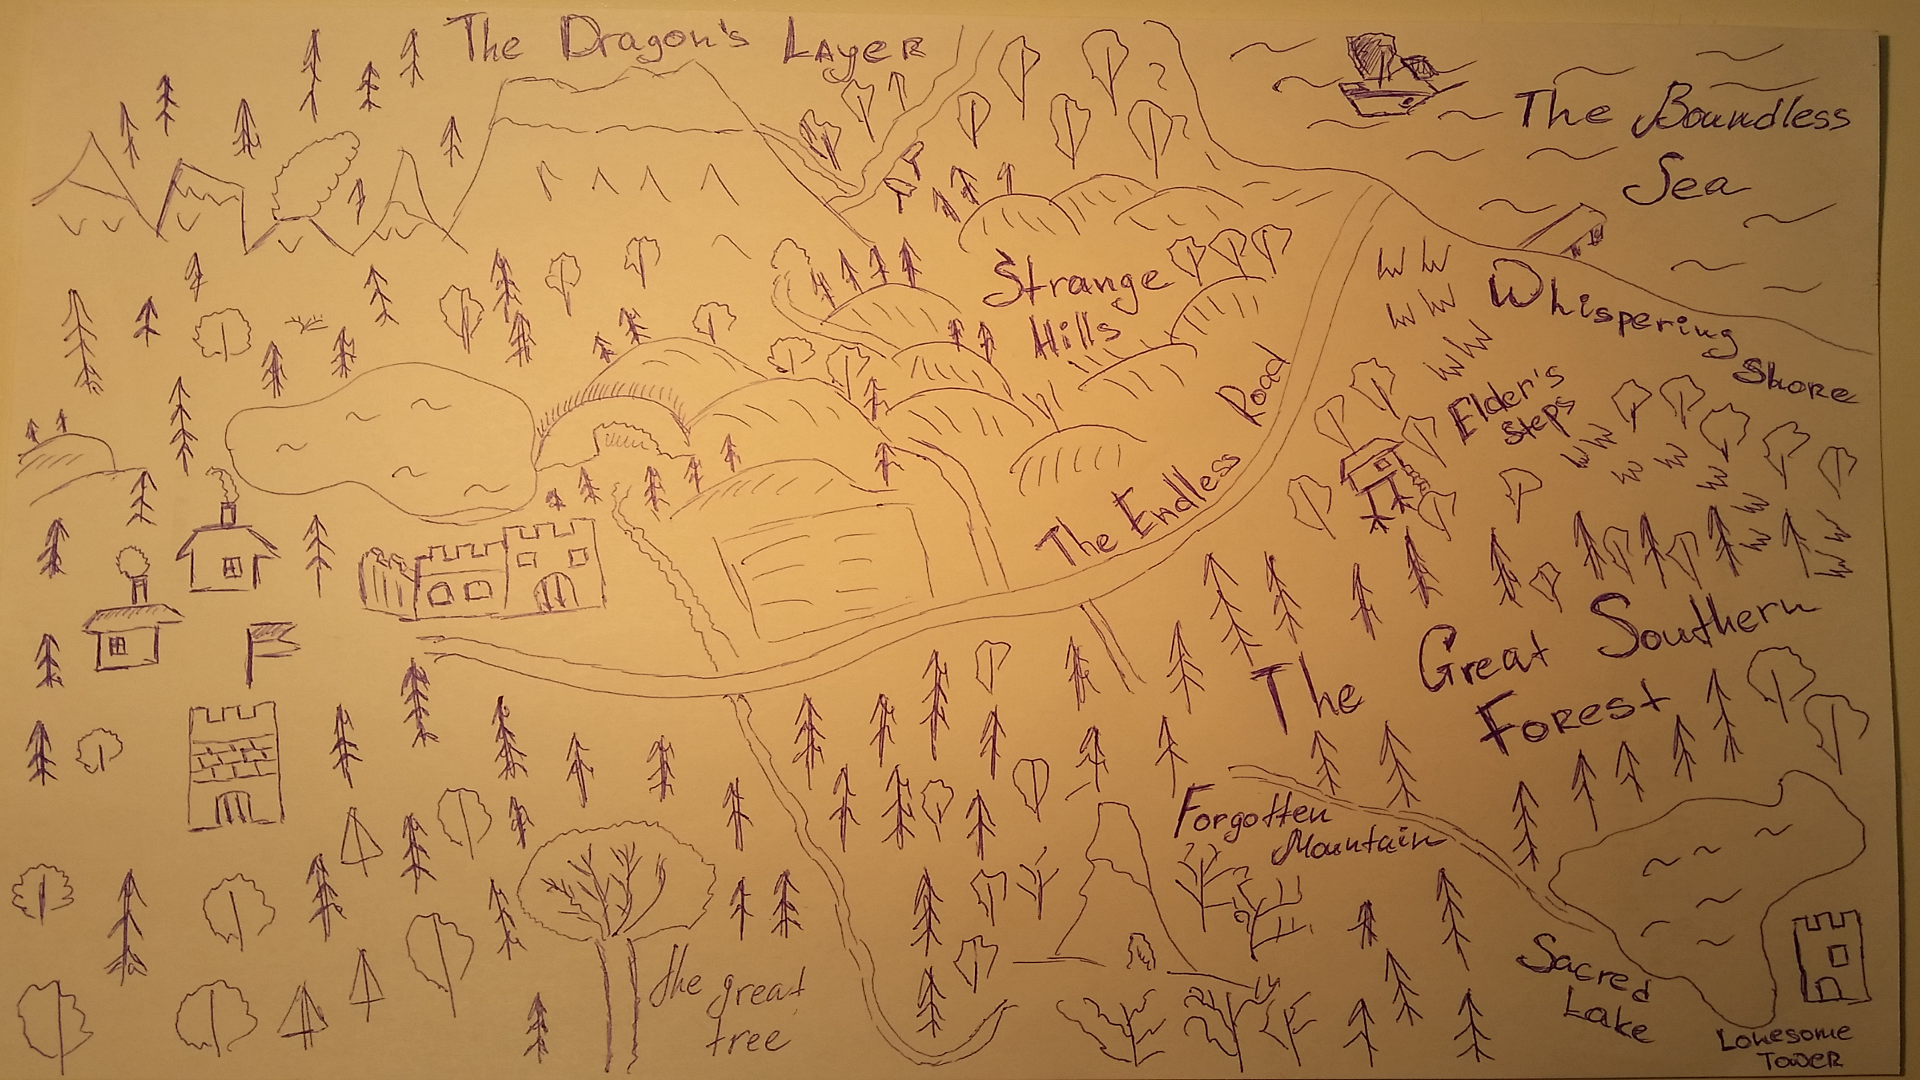 The Dragon's Layer
The Boundless
Sea
Strange
Hills
Whispering
Shore
Elder's
steps
The Endless Road
The Great Southern
Forest
Forgotten
Mountain
the great
tree
Sacred
Lake
Lonesome
Tower